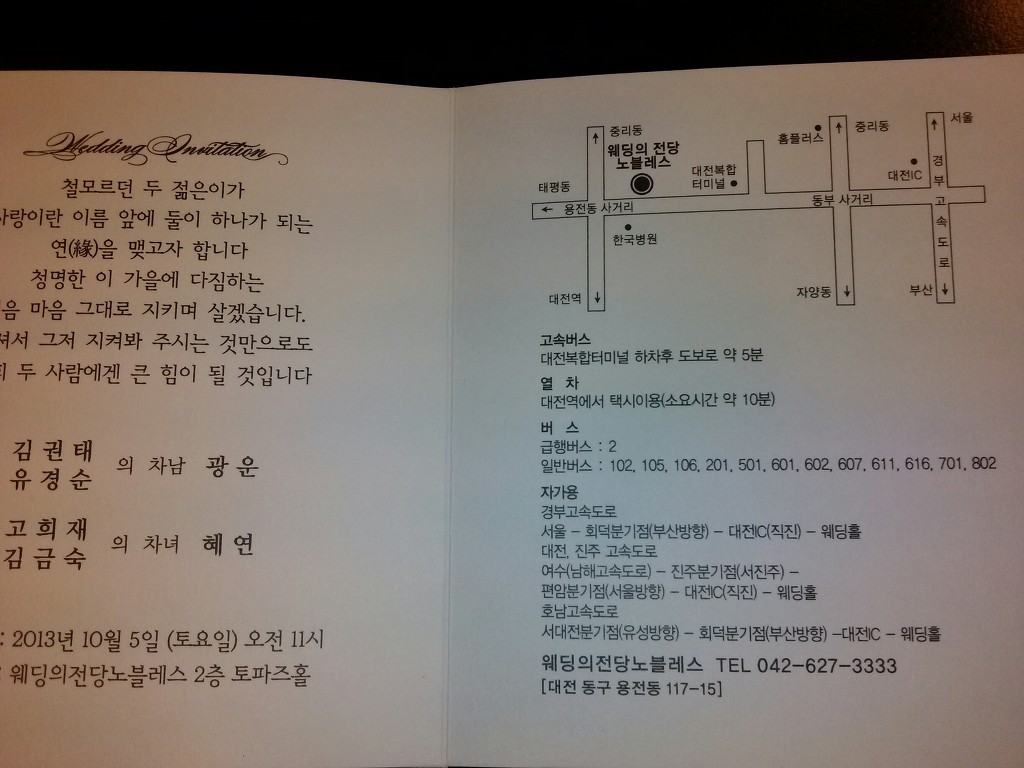 Wedding Invitation
철모르던 두 젊은이가
사랑이란 이름 앞에 둘이 하나가 되는
연(緣)을 맺고자 합니다
청명한 이 가을에 다짐하는
마음 그대로 지키며 살겠습니다.
그저 지켜봐 주시는 것만으로도
두 사람에겐 큰 힘이 될 것입니다
김권태
유경순 의 차남 광운
고희재
김금숙 의 차녀 혜연
: 2013년 10월 5일 (토요일) 오전 11시
: 웨딩의전당노블레스 2층 토파즈홀
중리동
웨딩의 전당
노블레스
대전복합
터미널
홈플러스
중리동
서울
대전IC
태평동
용전동 사거리
동부 사거리
경부고속도로
한국병원
대전역
자양동
부산
고속버스
대전복합터미널 하차후 도보로 약 5분
열 차
대전역에서 택시이용(소요시간 약 10분)
버 스
급행버스 : 2
일반버스 : 102, 105, 106, 201, 501, 601, 602, 607, 611, 616, 701, 802
자가용
경부고속도로
서울 - 회덕분기점(부산방향) - 대전IC(직진) - 웨딩홀
대전, 진주 고속도로
여수(남해고속도로) - 진주분기점(서진주) -
편암분기점(서울방향) - 대전IC(직진) - 웨딩홀
호남고속도로
서대전분기점(유성방향) - 회덕분기점(부산방향) -대전IC - 웨딩홀
웨딩의전당노블레스 TEL 042-627-3333
[대전 동구 용전동 117-15]